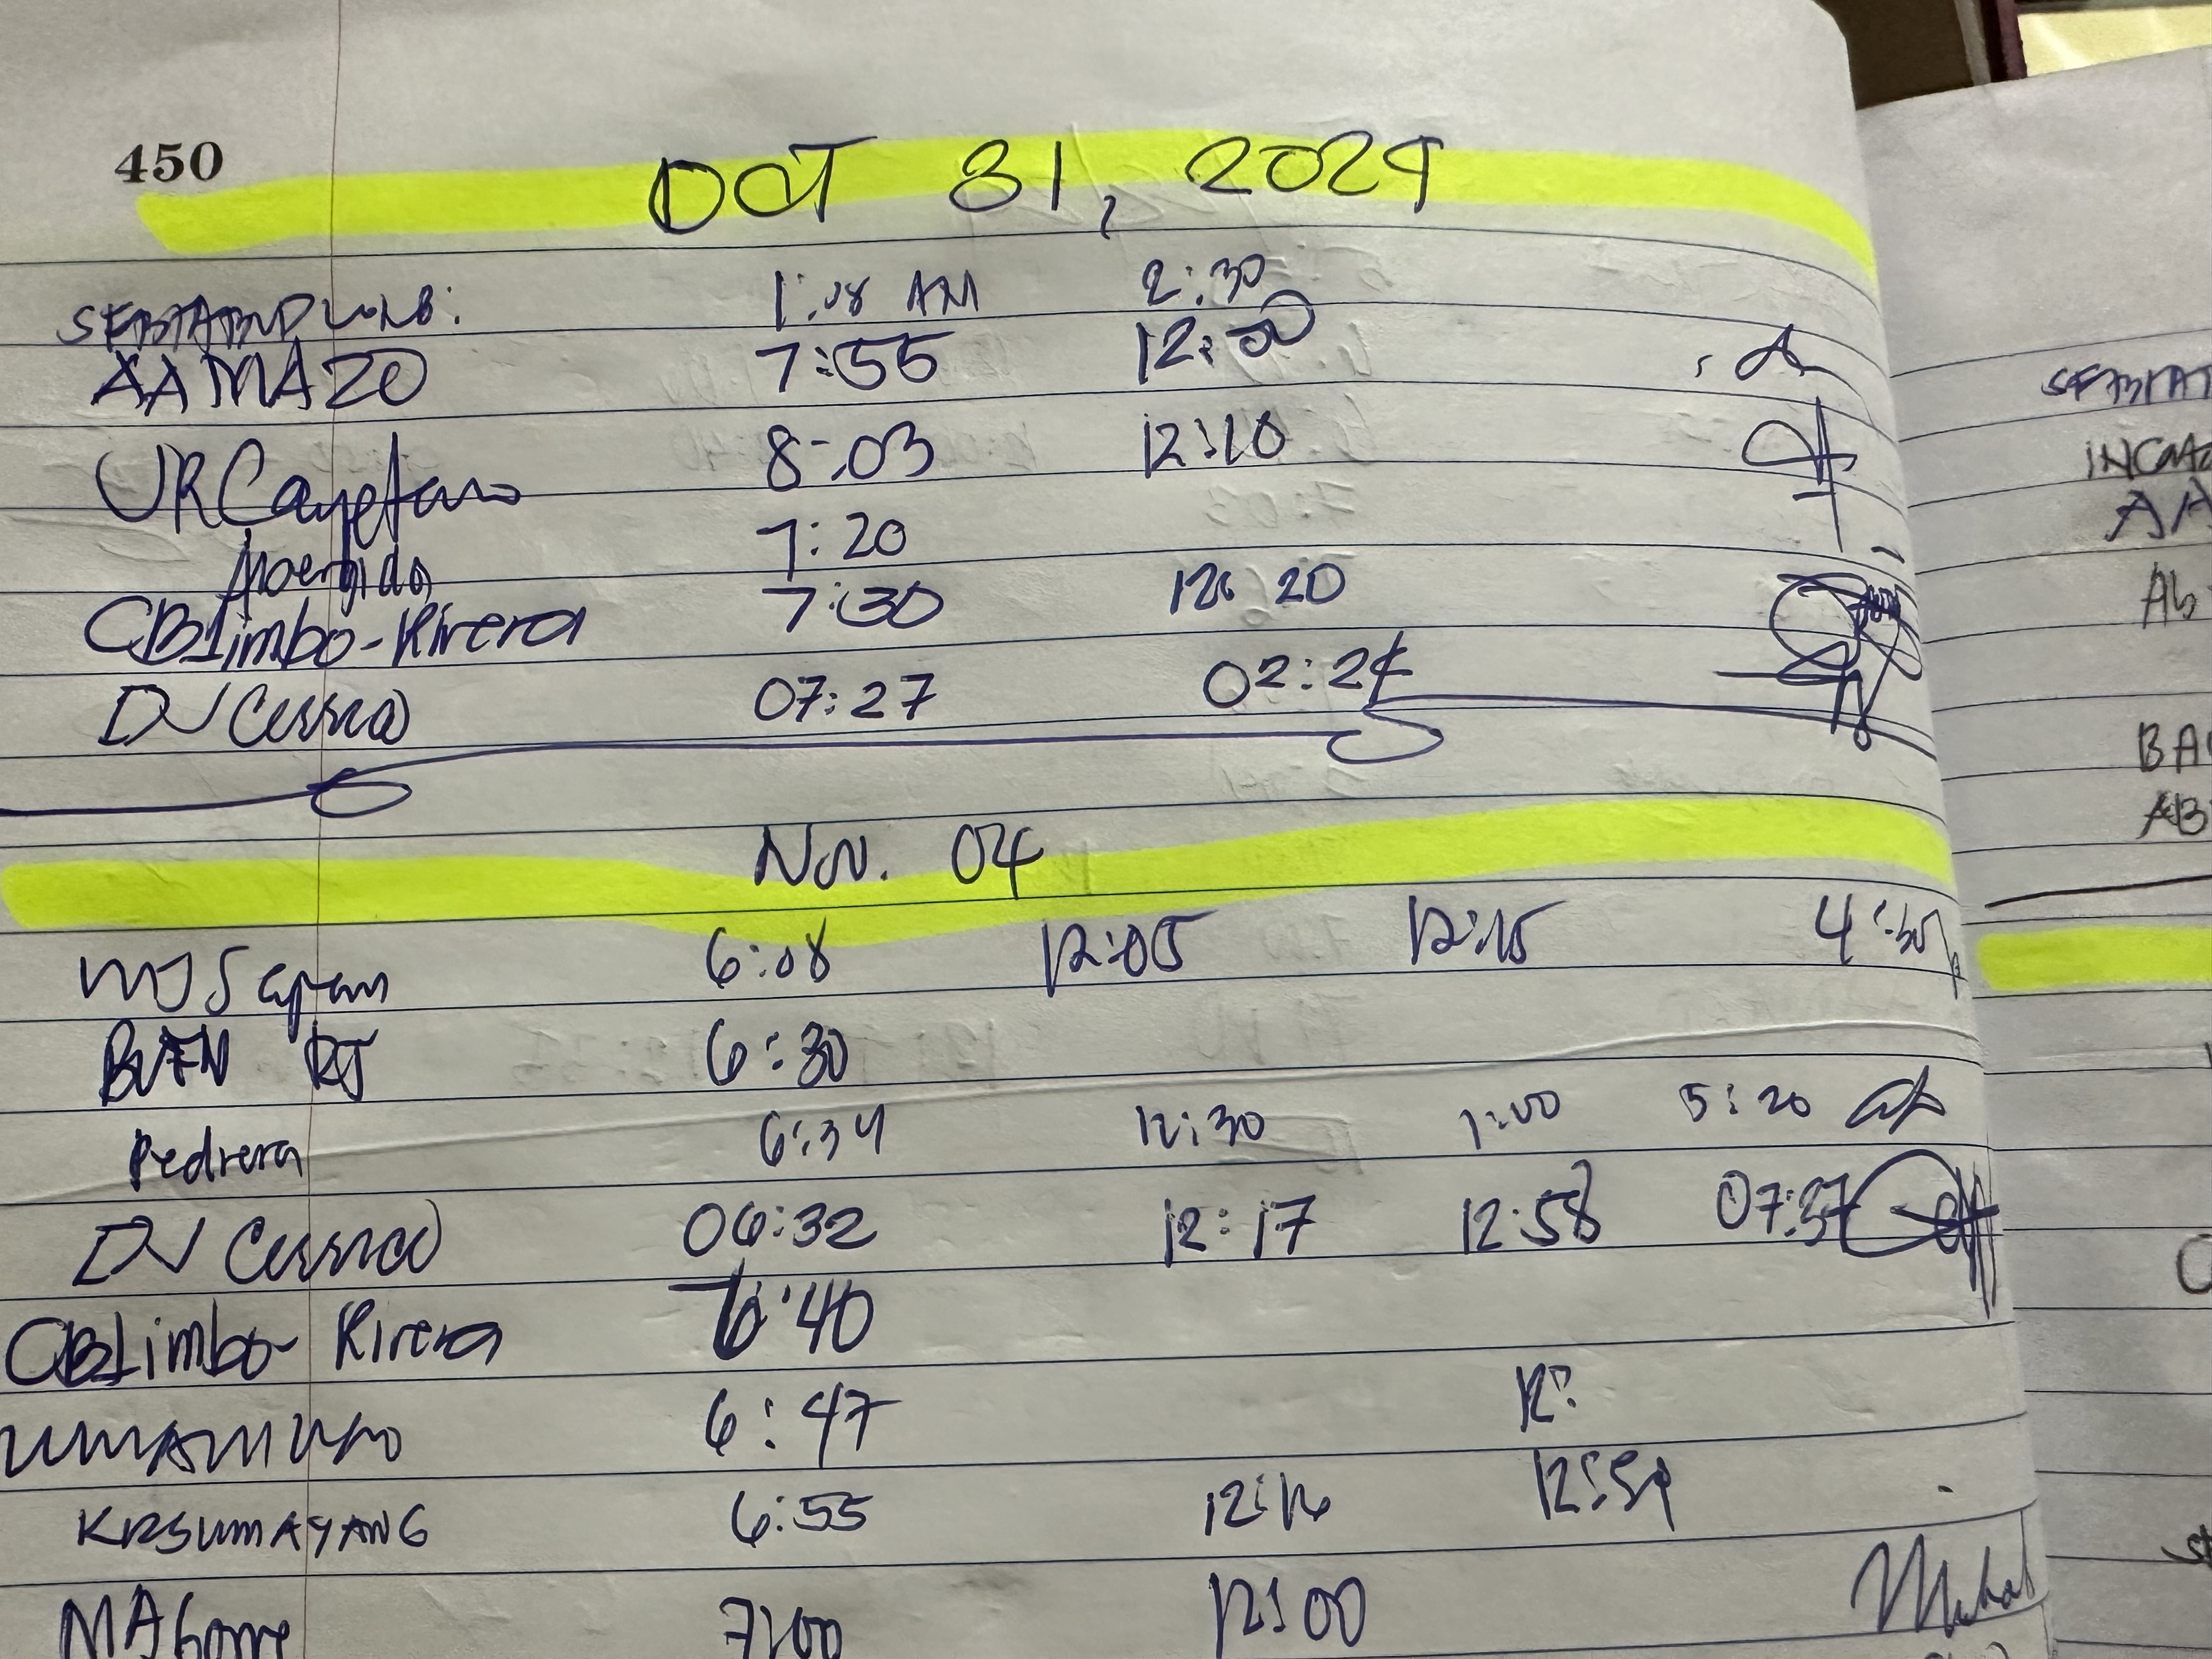 450
OCT 31, 2024
1:08 AM 2:30
AAMAZO 7:55 12:00
URCayetano 8:03 12:10
7:20
CBLimbo-Rivera 7:30 12:20
DJ 07:27 02:24
Nov. 04
6:08 12:05 12:15 4:30
BUEN RJ 6:30
Pedrera 6:34 12:30 1:00 5:20
DJ 06:32 12:17 12:58 07:37
CBLimbo-Rivera 6:40
6:47 12:
KRSUMAYANG 6:55 12:16 12:59
7:00 12:00
INCA
AA
Ab
BA
AB